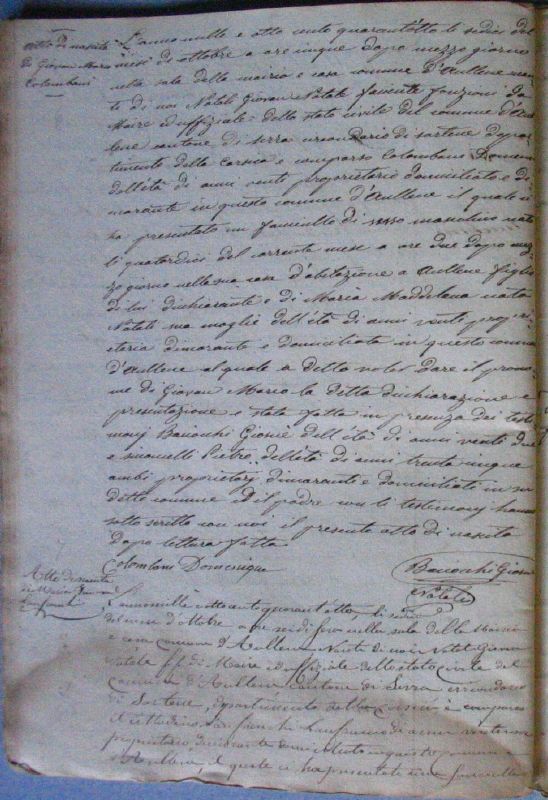 Atto di nascita
di Giovan Marco
Colombani
L'anno mille e otto cento quarantotto li sedici del
mese di ottobre a ore cinque dopo mezzo giorno
nella sala della mairia e casa comune d'Aullene
te di noi Natali Giovan Natale facente fonzioni da
Maire ed uffiziale dello stato civile del comune d'Aul
lene cantone di serra circondario di sartene dipar
timento della Corsica e comparso Colombani
dell'età di anni venti proprietario domiciliato e di
morante in questo comune d'Aullene il quale ci
ha presentato un fanciullo di sesso mascolino nato
li quatordici del corrente mese a ore due dopo mez
zo giorno nella sua casa d'abitazione a Aullene figlio
di lui dichiarante e di Maria Maddalena nata
Natali sua moglie dell'età di anni venti propri
etaria dimorante e domiciliata in questo comune
d'Aullene al quale a detto voler dare il prono
me di Giovan Marco la detta dichiarazione e
presentazione e stata fatta in presenza dei testi
monj Baiocchi Giosiè dell'età di anni venti due
e Pietro dell'età di anni trenta cinque
ambi proprietarj dimoranti e domiciliati in su
detto comune ed il padre con li testimonj hanno
sotto scritto con noi il presente atto di nascita
dopo lettura fatta
Colombani Domenique
Baiocchi Giosiè
Natali
Atto di nascita
di Maria
L'anno mille otto cento quarant'otto, li sedici
del mese d'ottobre a ore sei di sera nella sala della Mairia
e casa comune d'Aullene Avanti di noi Natali Giovan
Natale f.f. di Maire ed uffiziale dello stato civile del
comune d'Aullene cantone di Serra circondario
di Sartene, dipartimento della Corsica è comparso
il cittadino Lanfranchi di anni
proprietario, dimorante e domiciliato in questo comune
d'Aullene, il quale ci ha presentato una fanciulla